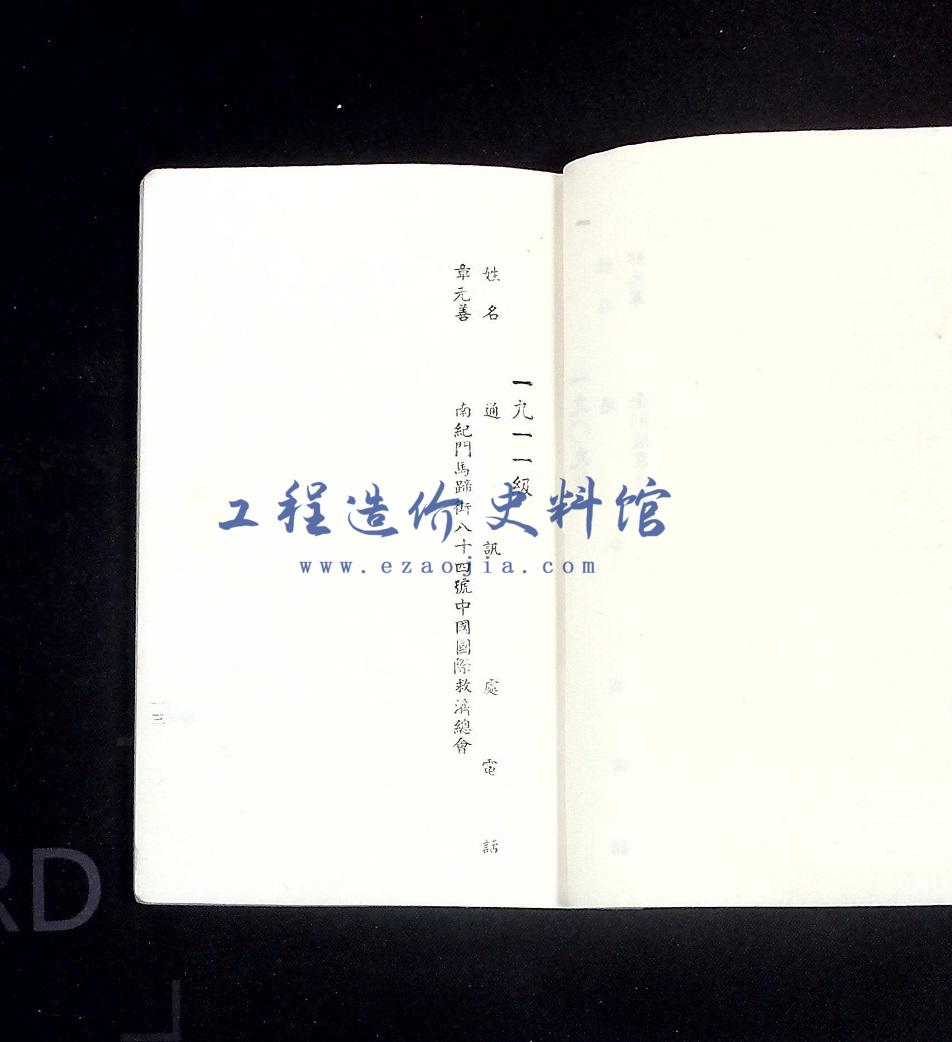 一九一一級
姓名 通訊處 電話
章元善 南紀門馬蹄街八十四號中國國際救濟總會
一三
工程造价史料馆
www.ezaojia.com
RD